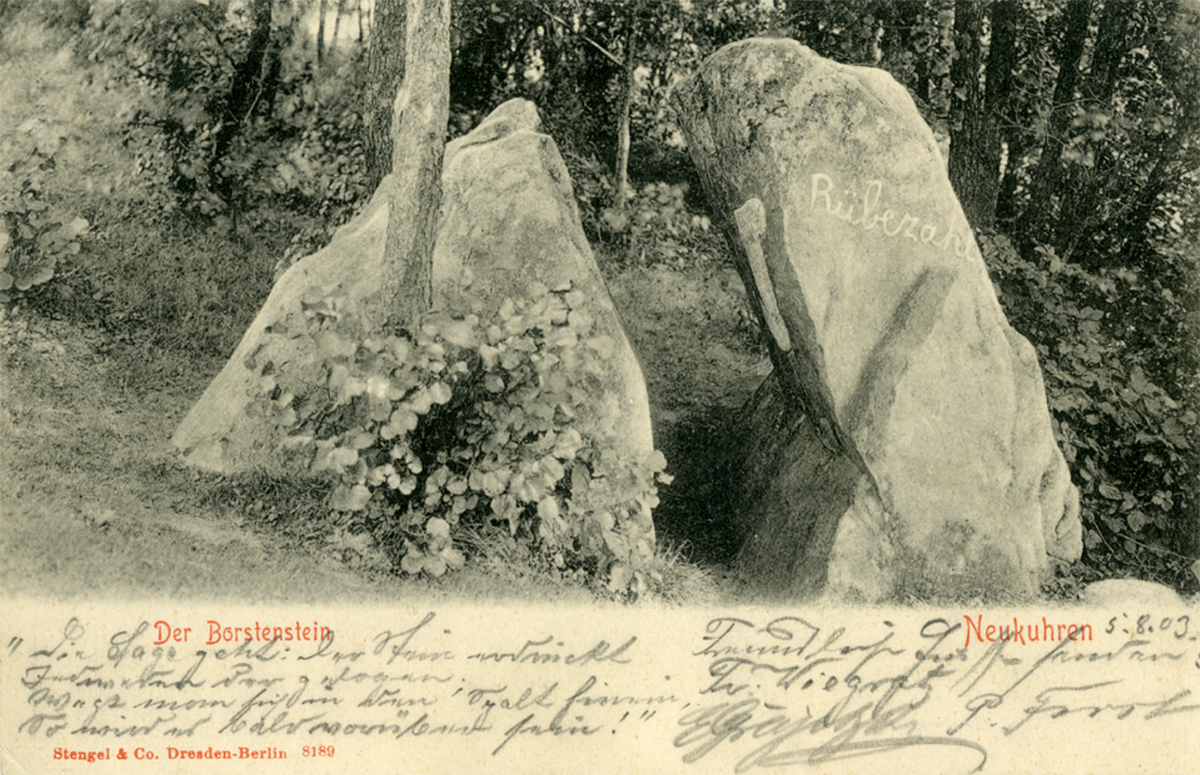 Rübezahl
Der Borstenstein
Neukuhren
5.8.03.
"Die Sage geht: Der Stein erdrückt
Jedweden der gelogen.
Wagt man sich in den Spalt hinein,
So wird es bald vorüber sein!"
Freundlichen Gruß senden
Fr.
P.
Stengel & Co. Dresden-Berlin 8189